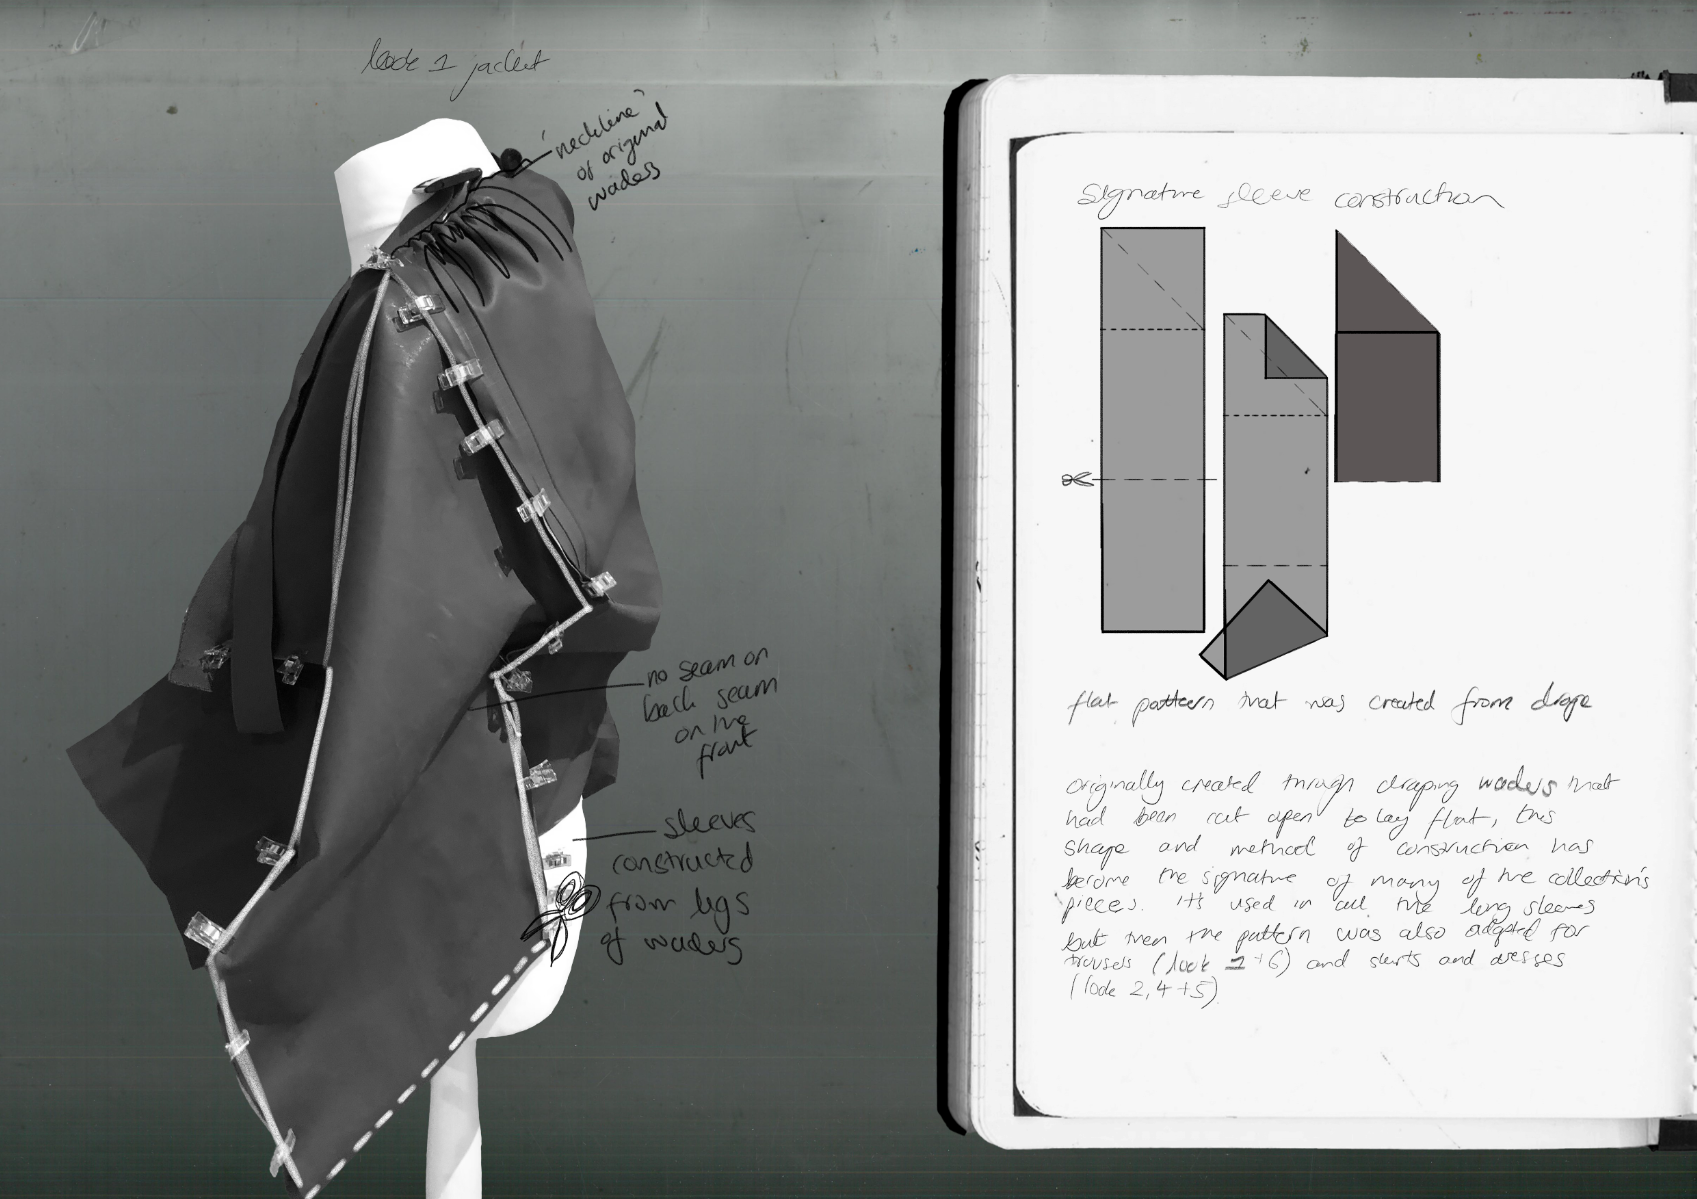 look 1 jacket
'neckline'
of original
waders
no seam on
back seam
on the
front
sleeves
constructed
from legs
of waders
signature sleeve construction
flat pattern that was created from drape
originally created through draping waders that
had been cut open to lay flat, this
shape and method of construction has
become the signature of many of the collection's
pieces. it's used in all the long sleeves
but then the pattern was also adapted for
trousers (look 1 + 6) and skirts and dresses
(look 2, 4 + 5)